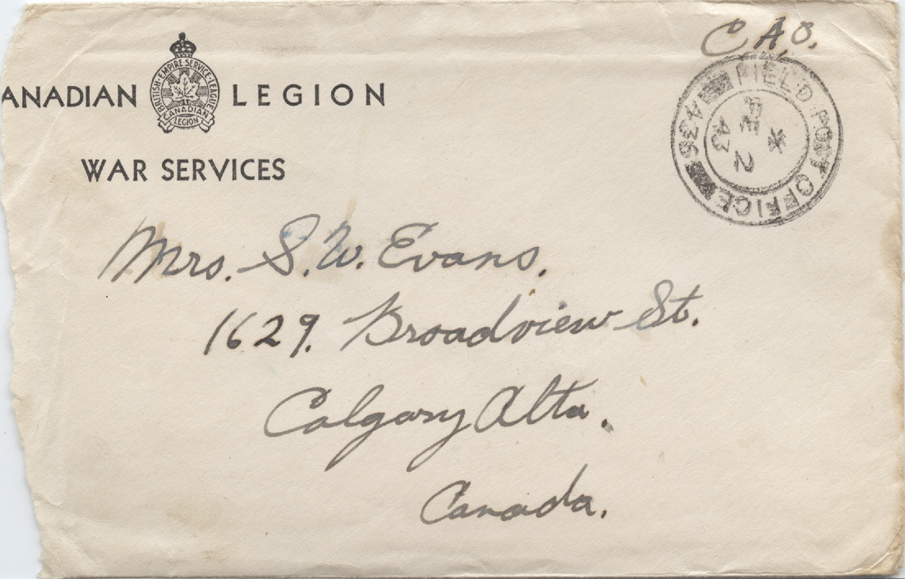 C A O.
ANADIAN LEGION
BRITISH EMPIRE SERVICE LEAGUE
CANADIAN LEGION
WAR SERVICES
FIELD POST OFFICE
2
43
Mrs. S. W. Evans,
1629. Broadview St.
Calgary Alta.
Canada.